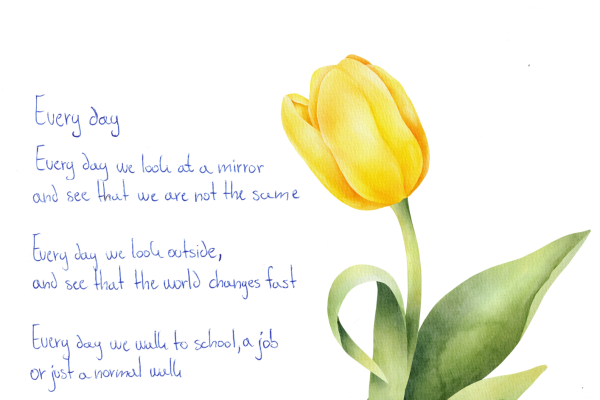 Every day
Every day we look at a mirror
and see that we are not the same
Every day we look outside,
and see that the world changes fast
Every day we walk to school, a job
or just a normal walk